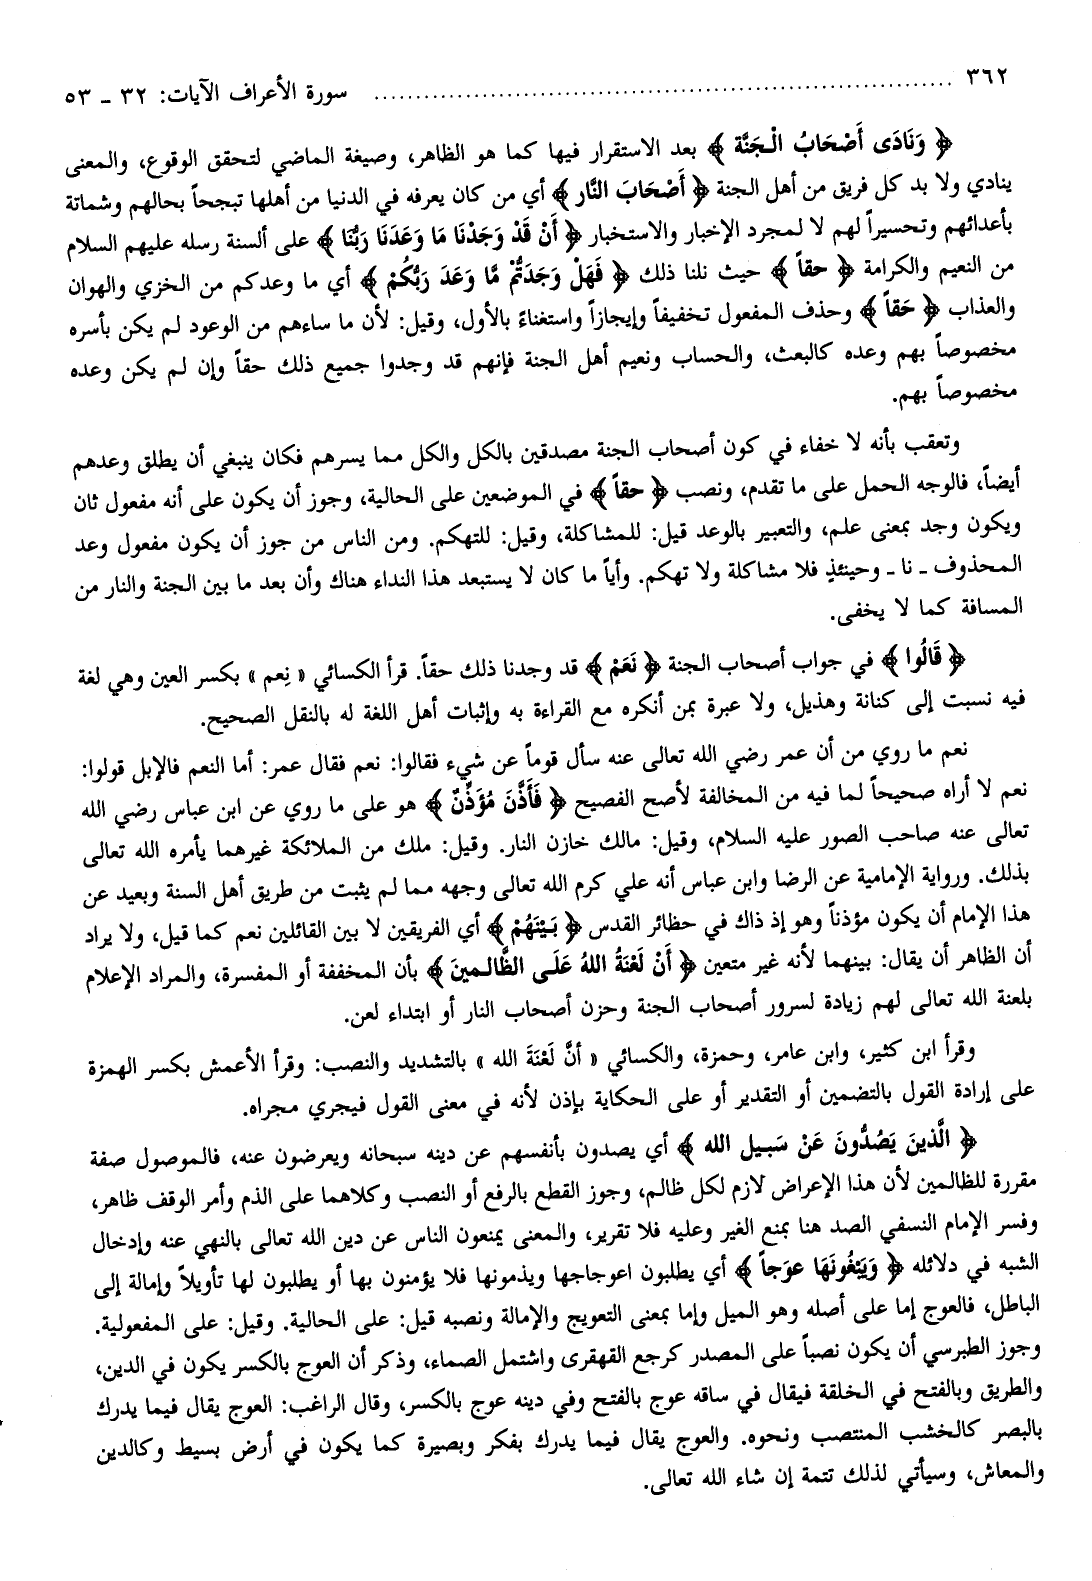 ٣٦٢ ........................................ سورة الأعراف الآيات: ٣٢ ـ ٥٣
﴿ وَنَادَى أَصْحَابُ الْجَنَّة ﴾ بعد الاستقرار فيها كما هو الظاهر، وصيغة الماضي لتحقق الوقوع، والمعنى
ينادي ولا بد كل فريق من أهل الجنة ﴿ أَصْحَابَ النَّار ﴾ أي من كان يعرفه في الدنيا من أهلها تبجحاً بحالهم وشماتة
بأعدائهم وتحسيراً لهم لا لمجرد الإخبار والاستخبار ﴿ أَنْ قَدْ وَجَدْنَا مَا وَعَدَنَا رَبُّنَا ﴾ على ألسنة رسله عليهم السلام
من النعيم والكرامة ﴿ حقاً ﴾ حيث نلنا ذلك ﴿ فَهَلْ وَجَدَتُمْ مَّا وَعَدَ رَبُّكُمْ ﴾ أي ما وعدكم من الخزي والهوان
والعذاب ﴿ حَقاً ﴾ وحذف المفعول تخفيفاً وإيجازاً واستغناءً بالأول، وقيل: لأن ما ساءهم من الوعود لم يكن بأسره
مخصوصاً بهم وعده كالبعث، والحساب ونعيم أهل الجنة فإنهم قد وجدوا جميع ذلك حقاً وإن لم يكن وعده
مخصوصاً بهم.
وتعقب بأنه لا خفاء في كون أصحاب الجنة مصدقين بالكل والكل مما يسرهم فكان ينبغي أن يطلق وعدهم
أيضاً، فالوجه الحمل على ما تقدم، ونصب ﴿ حقاً ﴾ في الموضعين على الحالية، وجوز أن يكون على أنه مفعول ثان
ويكون وجد بمعنى علم، والتعبير بالوعد قيل: للمشاكلة، وقيل: للتهكم. ومن الناس من جوز أن يكون مفعول وعد
المحذوف ـ نا ـ وحينئذٍ فلا مشاكلة ولا تهكم. وأياً ما كان لا يستبعد هذا النداء هناك وأن بعد ما بين الجنة والنار من
المسافة كما لا يخفى.
﴿ قَالُوا ﴾ في جواب أصحاب الجنة ﴿ نَعَمْ ﴾ قد وجدنا ذلك حقاً. قرأ الكسائي « نِعم » بكسر العين وهي لغة
فيه نسبت إلى كنانة وهذيل، ولا عبرة بمن أنكره مع القراءة به وإثبات أهل اللغة له بالنقل الصحيح.
نعم ما روي من أن عمر رضي الله تعالى عنه سأل قوماً عن شيء فقالوا: نعم فقال عمر: أما النعم فالإبل قولوا:
نعم لا أراه صحيحاً لما فيه من المخالفة لأصح الفصيح ﴿ فَأَذَّنَ مُؤَذِّنٌ ﴾ هو على ما روي عن ابن عباس رضي الله
تعالى عنه صاحب الصور عليه السلام، وقيل: مالك خازن النار. وقيل: ملك من الملائكة غيرهما يأمره الله تعالى
بذلك. ورواية الإمامية عن الرضا وابن عباس أنه علي كرم الله تعالى وجهه مما لم يثبت من طريق أهل السنة وبعيد عن
هذا الإمام أن يكون مؤذناً وهو إذ ذاك في حظائر القدس ﴿ بَيْنَهُمْ ﴾ أي الفريقين لا بين القائلين نعم كما قيل، ولا يراد
أن الظاهر أن يقال: بينهما لأنه غير متعين ﴿ أَنْ لَعْنَةُ اللهُ عَلَى الظَّالمينَ ﴾ بأن المخففة أو المفسرة، والمراد الإعلام
بلعنة الله تعالى لهم زيادة لسرور أصحاب الجنة وحزن أصحاب النار أو ابتداء لعن.
وقرأ ابن كثير، وابن عامر، وحمزة، والكسائي « أنَّ لَعْنَةَ الله » بالتشديد والنصب: وقرأ الأعمش بكسر الهمزة
على إرادة القول بالتضمين أو التقدير أو على الحكاية بإذن لأنه في معنى القول فيجري مجراه.
﴿ الَّذينَ يَصُدُّونَ عَنْ سَبيل الله ﴾ أي يصدون بأنفسهم عن دينه سبحانه ويعرضون عنه، فالموصول صفة
مقررة للظالمين لأن هذا الإعراض لازم لكل ظالم، وجوز القطع بالرفع أو النصب وكلاهما على الذم وأمر الوقف ظاهر،
وفسر الإمام النسفي الصد هنا بمنع الغير وعليه فلا تقرير، والمعنى يمنعون الناس عن دين الله تعالى بالنهي عنه وإدخال
الشبه في دلائله ﴿ وَيَبْغُونَهَا عوَجاً ﴾ أي يطلبون اعوجاجها ويذمونها فلا يؤمنون بها أو يطلبون لها تأويلاً وإمالة إلى
الباطل، فالعوج إما على أصله وهو الميل وإما بمعنى التعويج والإمالة ونصبه قيل: على الحالية. وقيل: على المفعولية.
وجوز الطبرسي أن يكون نصباً على المصدر كرجع القهقرى واشتمل الصماء، وذكر أن العوج بالكسر يكون في الدين،
والطريق وبالفتح في الخلقة فيقال في ساقه عوج بالفتح وفي دينه عوج بالكسر، وقال الراغب: العوج يقال فيما يدرك
بالبصر كالخشب المنتصب ونحوه. والعوج يقال فيما يدرك بفكر وبصيرة كما يكون في أرض بسيط وكالدين
والمعاش، وسيأتي لذلك تتمة إن شاء الله تعالى.